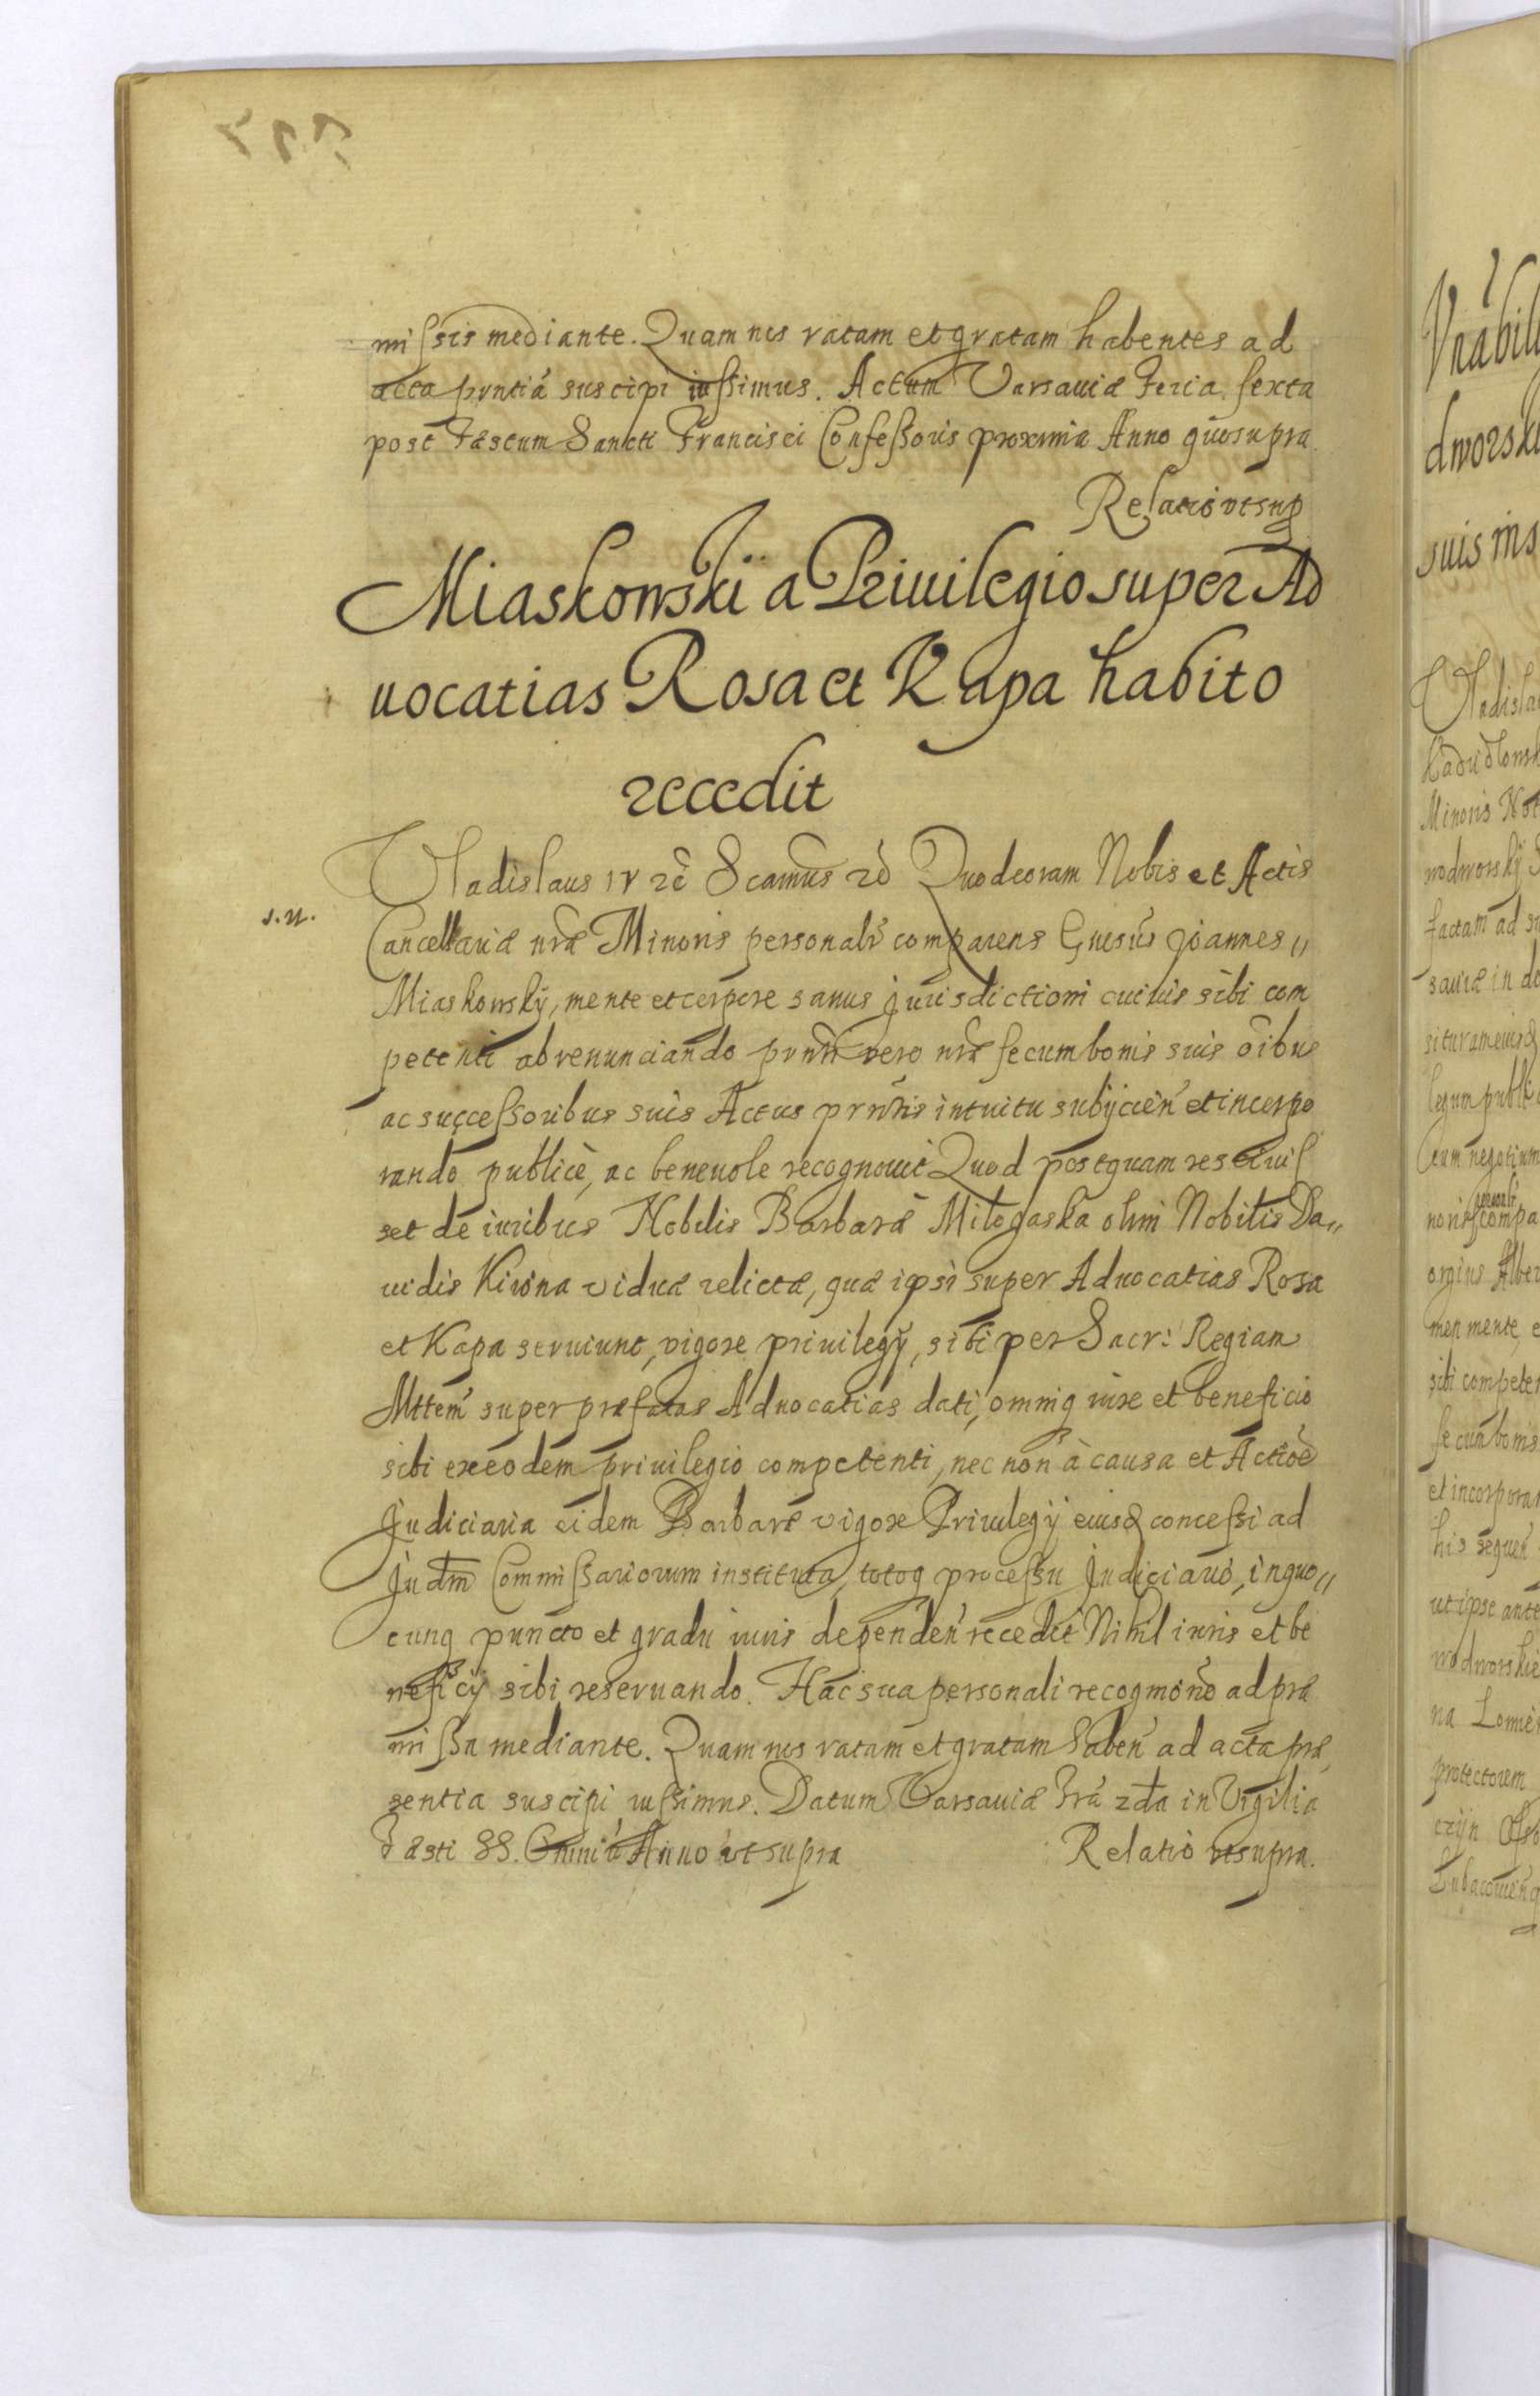 missis mediante. Quam nos ratam et gratam habentes ad
acta pnntiã suscipi iussimus. Actum Varsauiæ Feria sexta
post Fæstum Sancti Francisci Confessoris proxima Anno quo supra
Relatio vt sup
Miaskowskii a Priuilegio super Ad
uocatias Rosa et Kapa habito
recedit
Vladislaus IV rc Scamus rc Quod coram Nobis et Actis
s.n.
Cancellariæ nræ Minoris personalr comparens Gnrsus Joannes
Miaskowsky, mente et corpore sanus jurisdictioni cuiuis sibi com
petenti abrenunciando pnnti vero nræ se cum bonis suis oibus
ac successoribus suis Actus prntis intuitu subijcien et incorpo
rando publicè, ac beneuole recognouit Quod postquam resciuis
set de iuribus Nobilis Barbaræ Milogaska olim Nobilis Da„
uidis Kiwna viduæ relictæ, quæ ipsi super Aduocatias Rosa
et Kapa seruiunt, vigore priuilegÿ, sibi per Sacr: Regiam
Mttem super præfatas Aduocatias dati, omniq iure et beneficio
sibi ex eodem priuilegio competenti, nec non à causa et Actioe
Judiciaria eidem Barbaræ vigore Priuilegÿ eiusd concessi ad
Judm Commissariorum instituta, totoq processu Judiciario, in quo„
cunq puncto et gradu iuris dependen recedit Nihil iuris et be
neficÿ sibi reseruando. Hac sua personali recognõne ad præ
missa mediante. Quam nos ratam et gratam haben ad acta præ
sentia suscipi iussimus. Datum Varsauiæ fra 2da in Vigilia
Fæsti SS. Omniũ Anno vt supra
Relatio vt supra.
Vnabili
dworski
suis ins
Vladisla
Minoris Not
factam ad
sauiæ in
legum publi
Cum negotium
compa
mente
sibi compete
se cum bonis
et incorpora
his sequen
ut ipse ante
protectorem